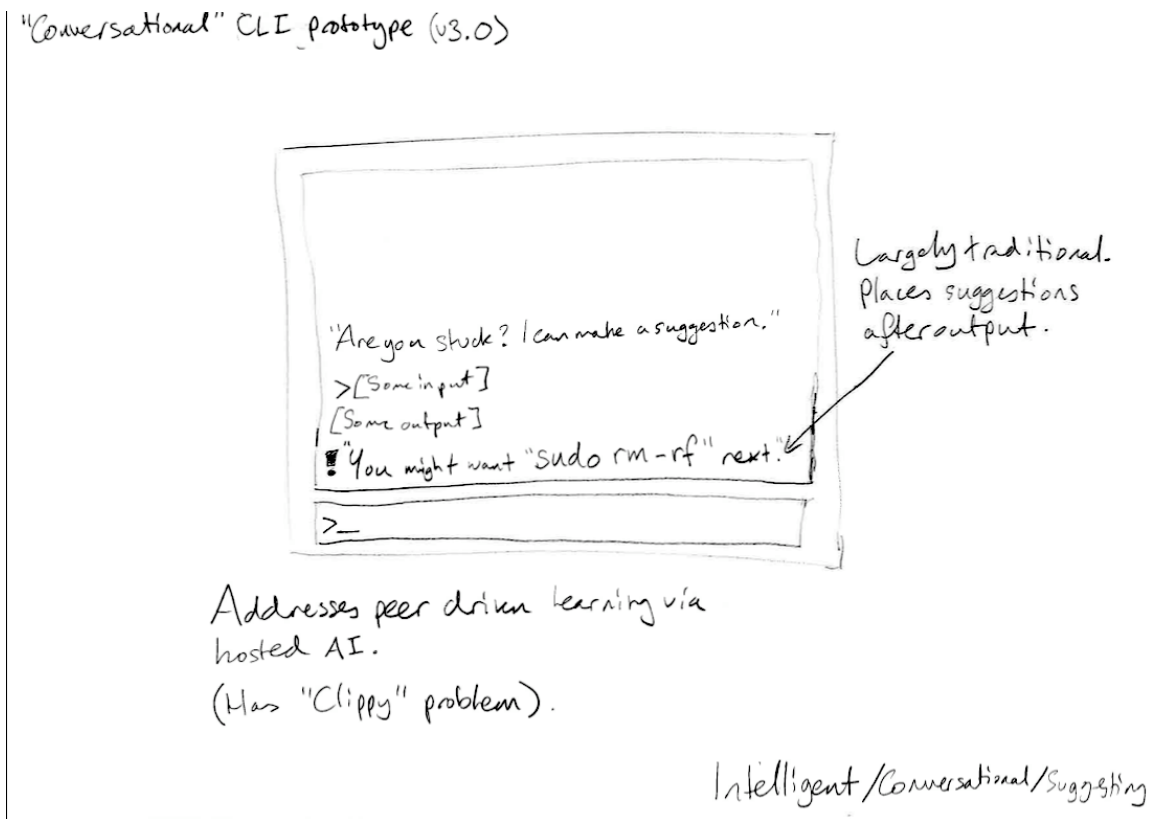 "Conversational" CLI prototype (v3.0)
"Are you stuck? I can make a suggestion."
>[Some input]
[Some output]
! "You might want "sudo rm -rf" next."
>_
Largely traditional.
Places suggestions
after output.
Addresses peer driven learning via
hosted AI.
(Has "Clippy" problem).
Intelligent/Conversational/Suggesting